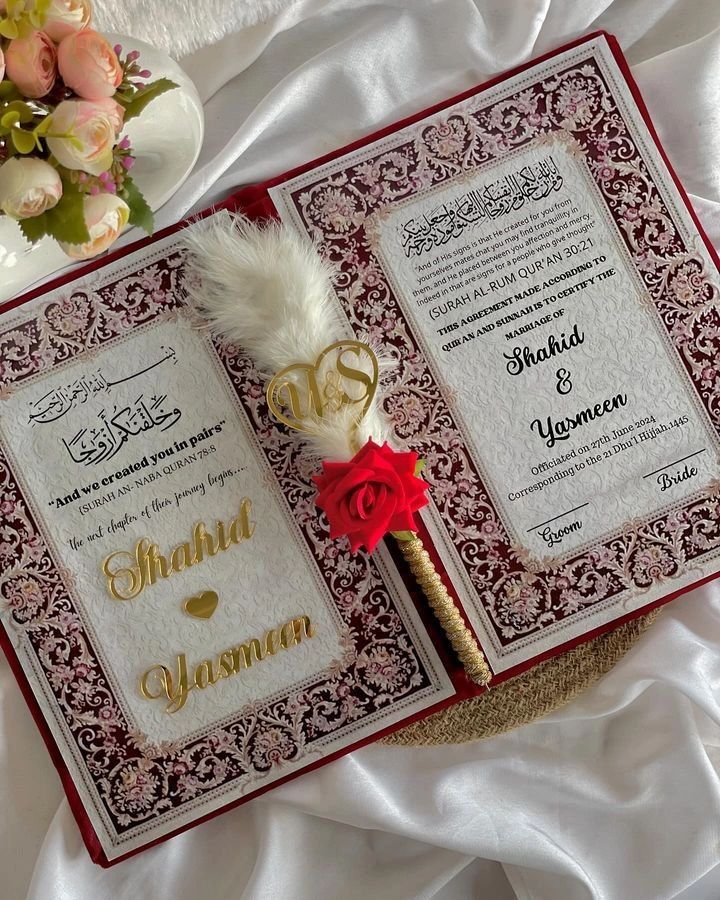 بسم الله الرحمن الرحيم
وخلقنكم أزوجا
"And we created you in pairs"
(SURAH AN- NABA QURAN 78-8
the next chapter of their journey begins....
Shahid
Yasmeen
U&S
"And of His signs is that He created for you from
yourselves mates that you may find tranquillity in
them, and He placed between you affection and mercy.
Indeed in that are signs for a people who give thought"
(SURAH AL-RUM QUR'AN 30:21
THIS AGREEMENT MADE ACCORDING TO
QUR'AN AND SUNNAH IS TO CERTIFY THE
MARRIAGE OF
Shahid
&
Yasmeen
Officiated on 27th June 2024
Corresponding to the 21 Dhu'l Hijjah,1445
Groom
Bride